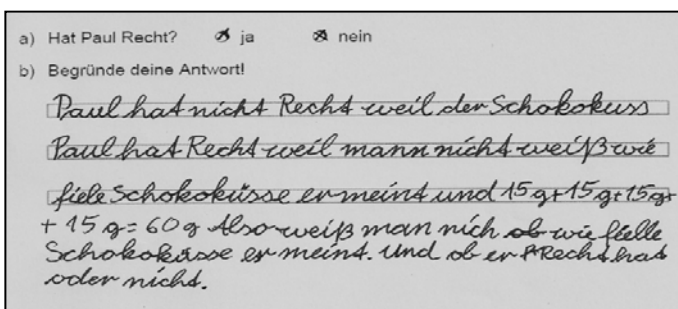 a) Hat Paul Recht? ja nein
b) Begründe deine Antwort!
Paul hat nicht Recht weil der Schokokuss
Paul hat Recht weil mann nicht weiß wie
fiele Schokoküsse er meint und 15g+15g+15g+
+ 15g=60g Also weiß man nich ob wie fielle
Schokoküsse er meint. Und ob er Recht hat
oder nicht.